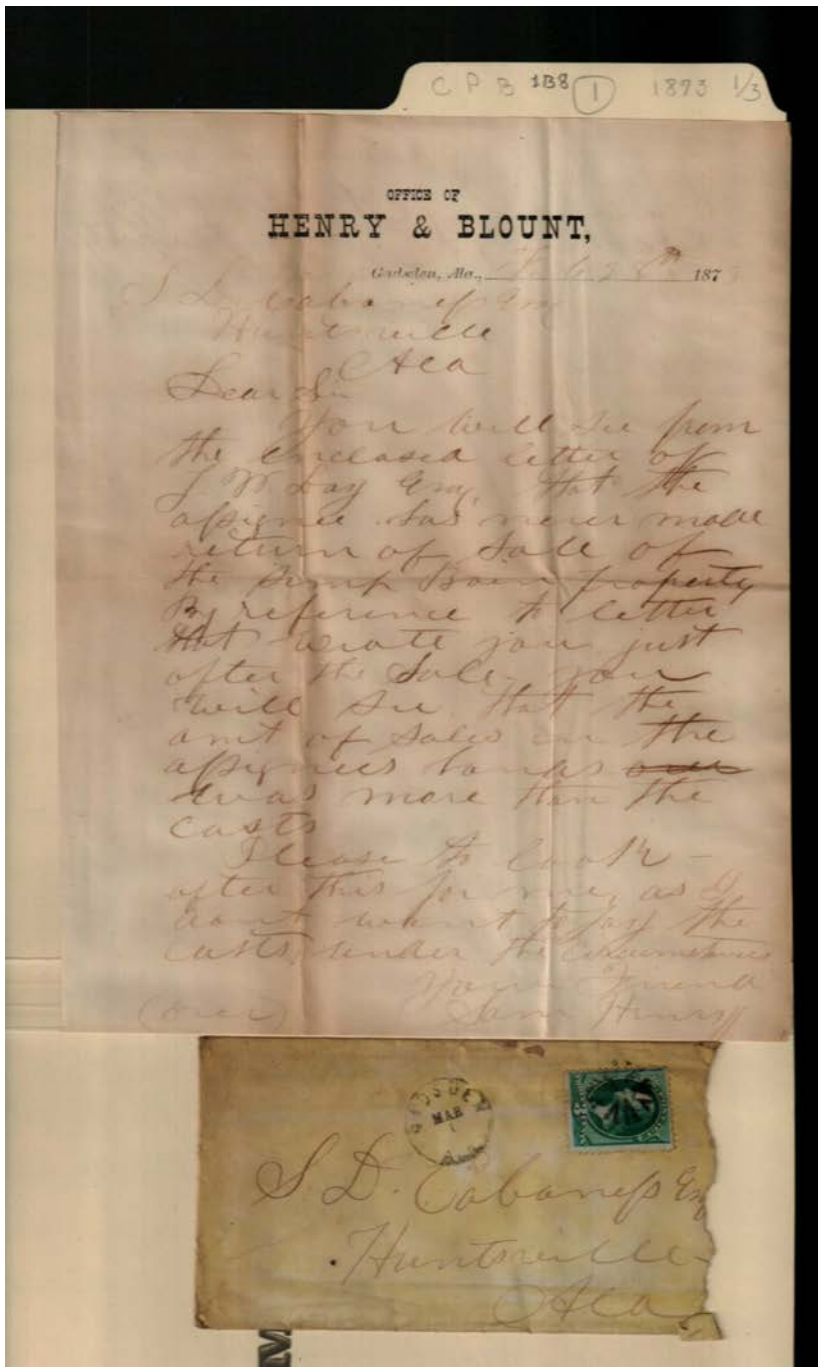 C P B 1B8 1 1873 1/3
OFFICE OF
HENRY & BLOUNT,
Gadsden, Ala., Feb 28th 187
S D. Cabaness Esq
Huntsville
Ala
Dear Sir
You will see from
the enclosed letter of
J W Day Esq. that the
assignee has never made
return of Sale of
the property
By reference to letter
that wrote you just
after the Sale you
will see that the
amt of Sales in the
assignees hands over
was more than the
costs
Please to look
after this for me, as I
dont want to pay the
costs under the circumstances
Your Friend
(over) Sam Henry
GADSDEN
MAR
1
ALA
S D. Cabaness Esq
Huntsville
Ala
M